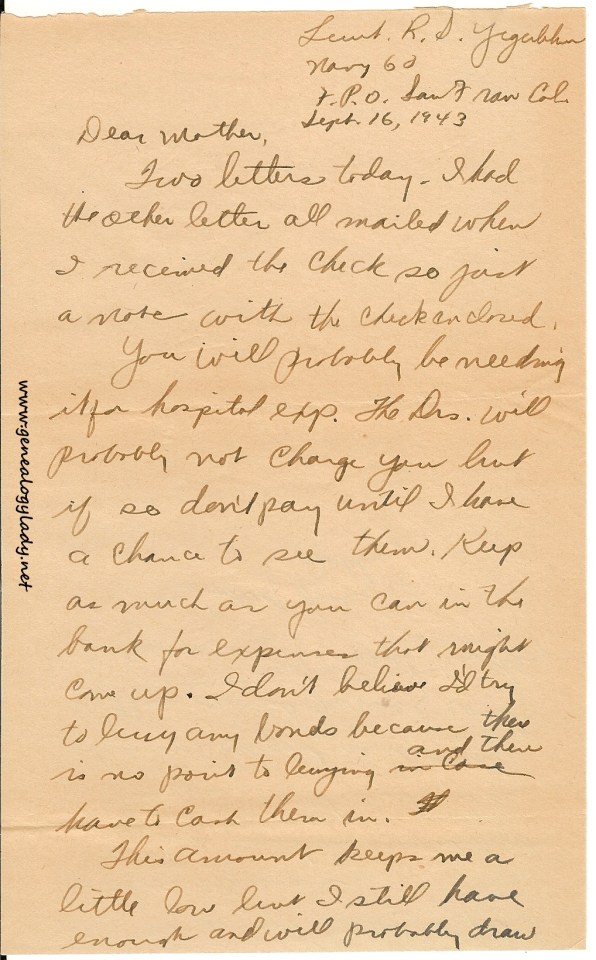 Lieut. R. D. Yegerlehner
Navy 60
F.P.O. San Fran Cal.
Sept. 16, 1943
Dear Mother,
Two letters today. I had
the other letter all mailed when
I received the check so just
a note with the check enclosed.
You will probably be needing
it for hospital exp. The Drs. will
probably not charge you but
if so don't pay until I have
a chance to see them. Keep
as much as you can in the
bank for expenses that might
come up. I don't believe I'd try
to buy any bonds because there
is no point to buying in case and then
have to cash them in.
This amount keeps me a
little low but I still have
enough and will probably draw
www.genealogylady.net